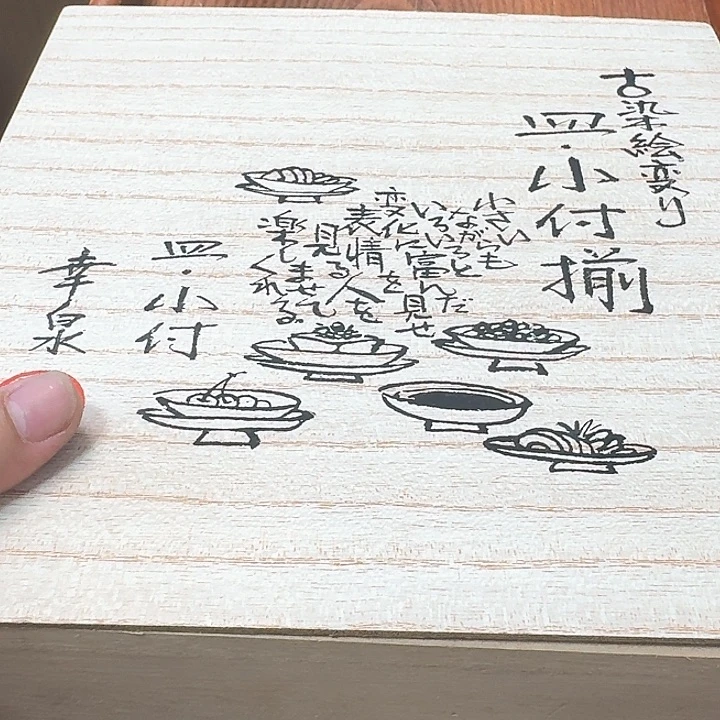 古染絵変り
皿・小付揃
小さい
ながらも
いろいろと
変化に富んだ
表情を見せ
見る人を
楽しませて
くれる。
皿・小付
幸泉